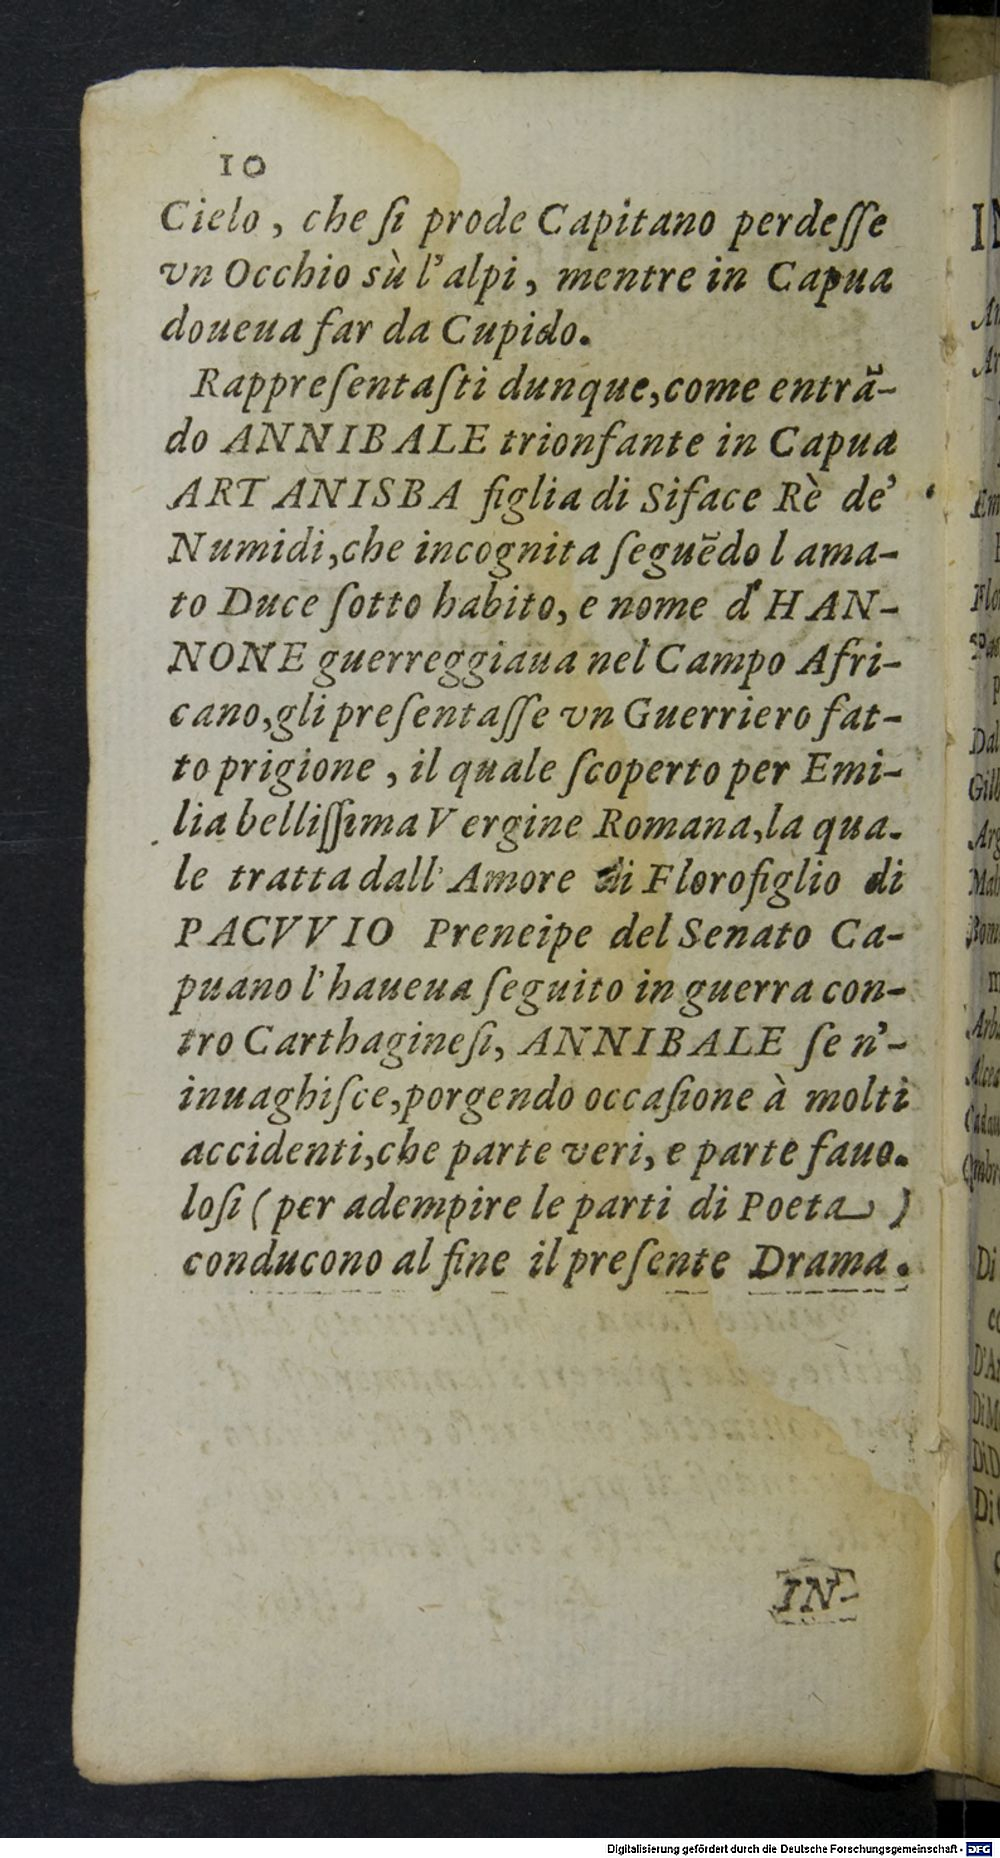 10
Cielo, che ſi prode Capitano perdeſſe
vn Occhio sù l'alpi, mentre in Capua
doueua far da Cupido.
Rappreſentaſti dunque, come entrã-
do ANNIBALE trionfante in Capua
ARTANISBA figlia di Siface Rè de'
Numidi, che incognita ſeguẽdo l ama-
to Duce ſotto habito, e nome d'HAN-
NONE guerreggiaua nel Campo Afri-
cano, gli preſentaſſe vn Guerriero fat-
to prigione, il quale ſcoperto per Emi-
lia belliſſima Vergine Romana, la qua-
le tratta dall' Amore di Florofiglio di
PACVVIO Preneipe del Senato Ca-
puano l'haueua ſeguito in guerra con-
tro Carthagineſi, ANNIBALE ſe n'-
inuaghiſce, porgendo occaſione à molti
accidenti, che parte veri, e parte fauo-
loſi (per adempire le parti di Poeta)
conducono al fine il preſente Drama.
IN-
Digitalisierung gefördert durch die Deutsche Forschungsgemeinschaft - DFG